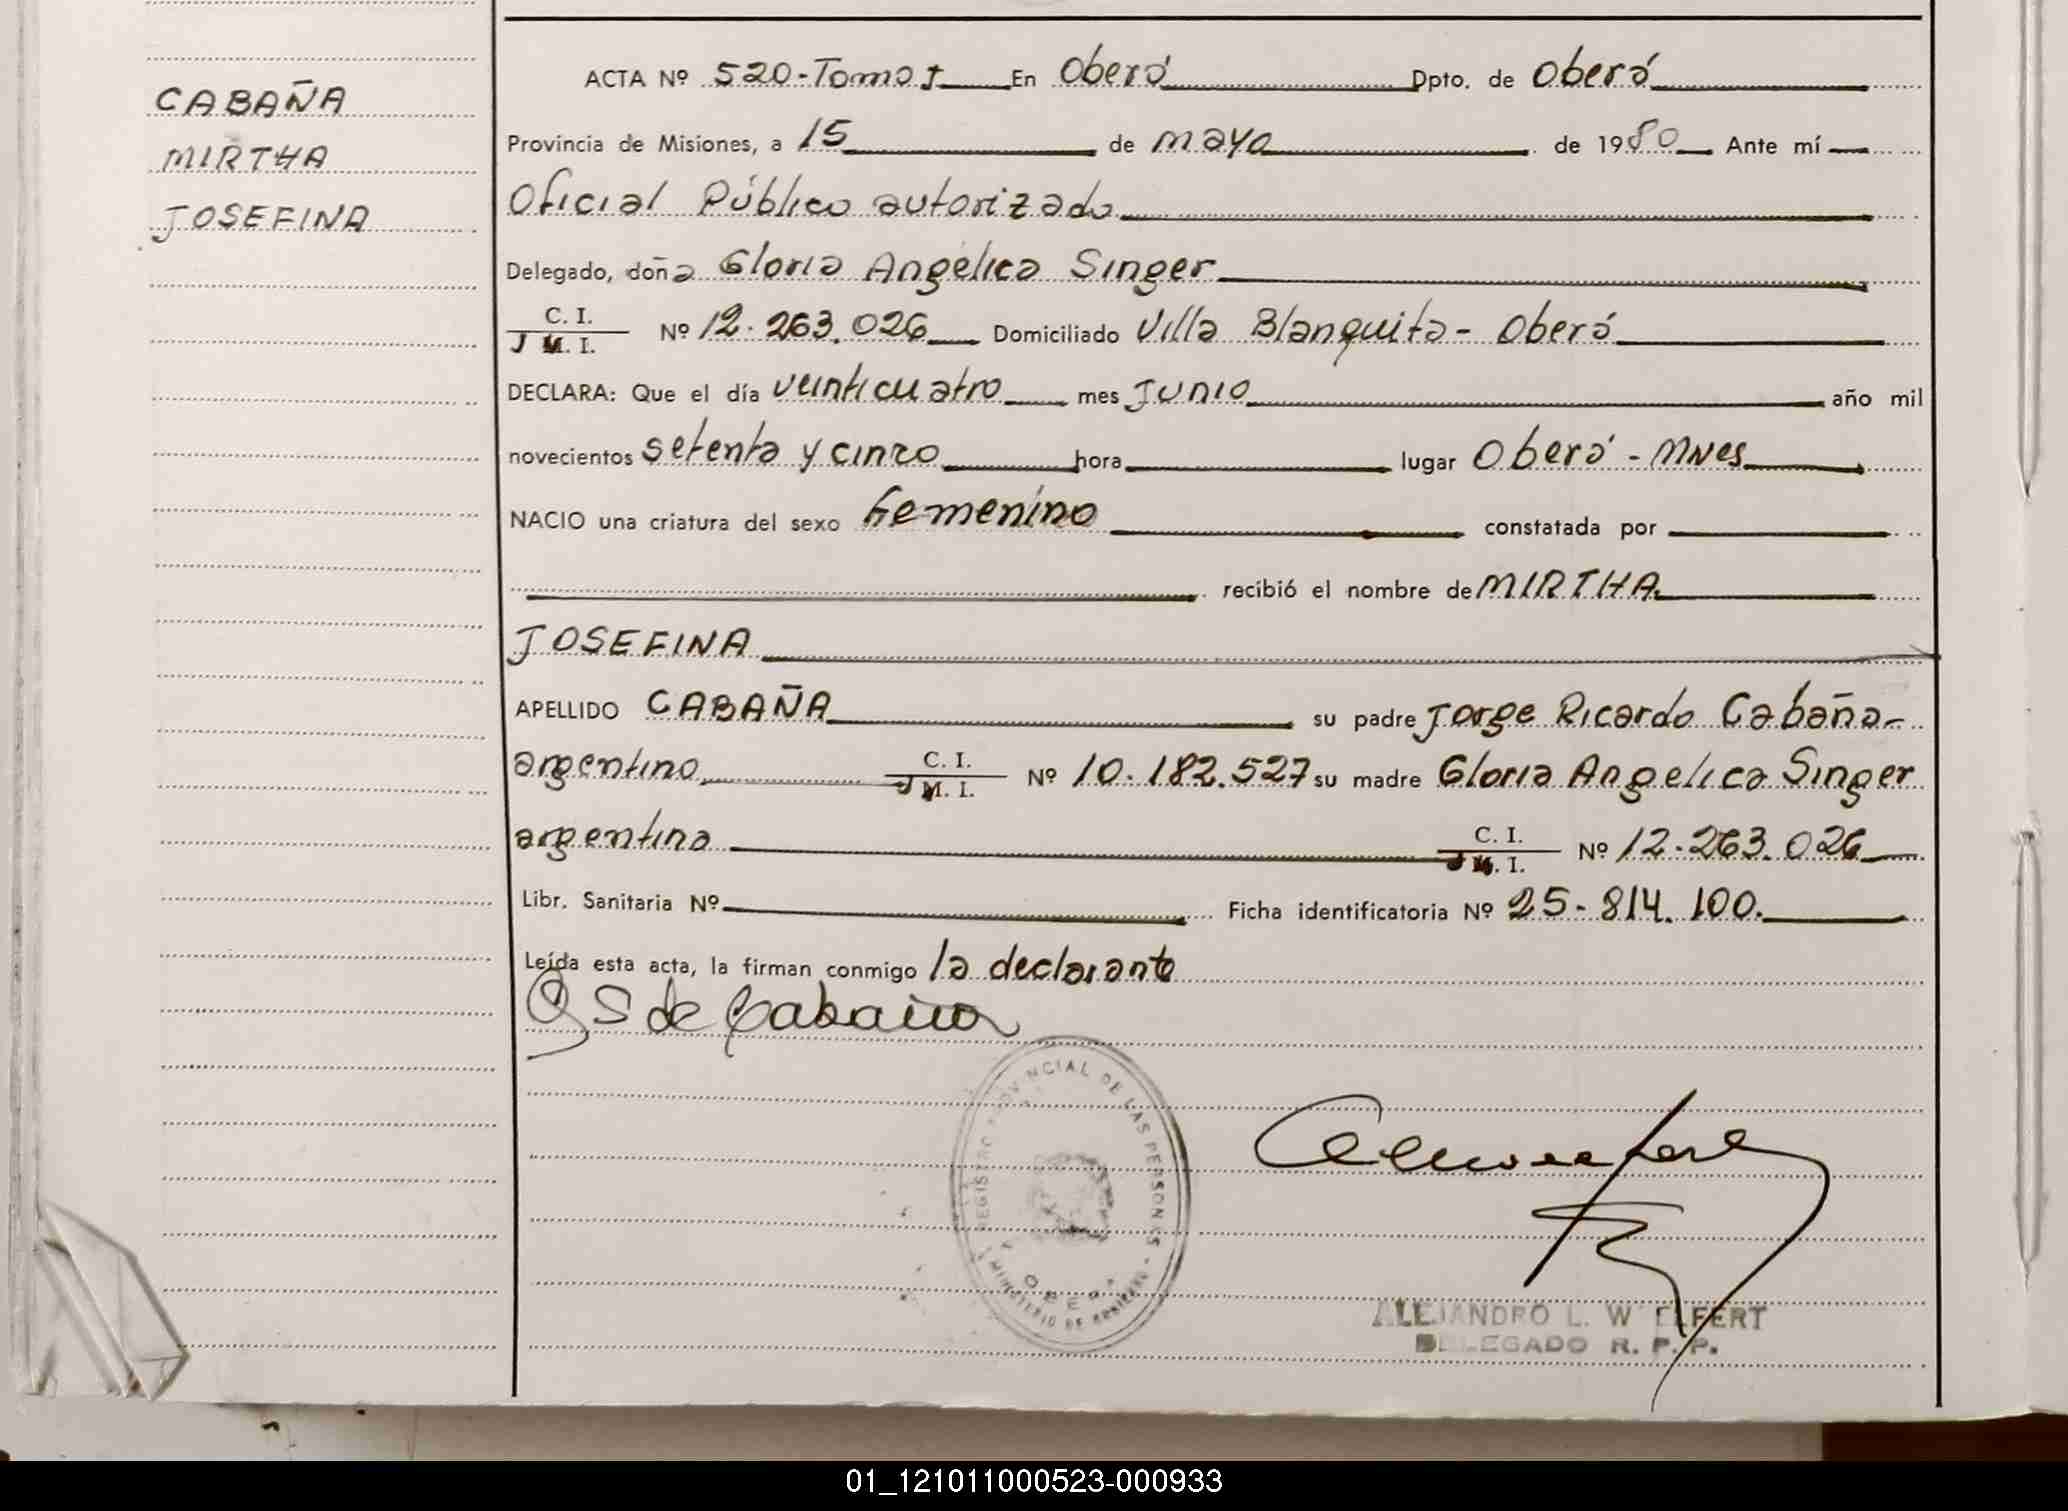 CABAÑA
MIRTHA
JOSEFINA
ACTA Nº 520-Tomo I En Oberá Dpto. de Oberá
Provincia de Misiones, a 15 de mayo de 1980 Ante mí
Oficial Público autorizado
Delegado, doña Gloria Angélica Singer
C. I.
M. I. Nº 12.263.026 Domiciliado Villa Blanquita - Oberá
DECLARA: Que el día veinticuatro mes Junio año mil
novecientos setenta y cinco hora lugar Oberá - Mnes
NACIO una criatura del sexo Femenino constatada por
recibió el nombre de MIRTHA
JOSEFINA
APELLIDO CABAÑA su padre Jorge Ricardo Cabaña
argentino C. I.
M. I. Nº 10.182.527 su madre Gloria Angelica Singer
argentina C. I.
M. I. Nº 12.263.026
Libr. Sanitaria Nº Ficha identificatoria Nº 25-814.100.
Leída esta acta, la firman conmigo la declarante
G S de Cabaña
REGISTRO PROVINCIAL DE LAS PERSONAS
MINISTERIO DE GOBIERNO
OBERA
ALEJANDRO L. W ELFERT
DELEGADO R. P. P.
01_121011000523-000933